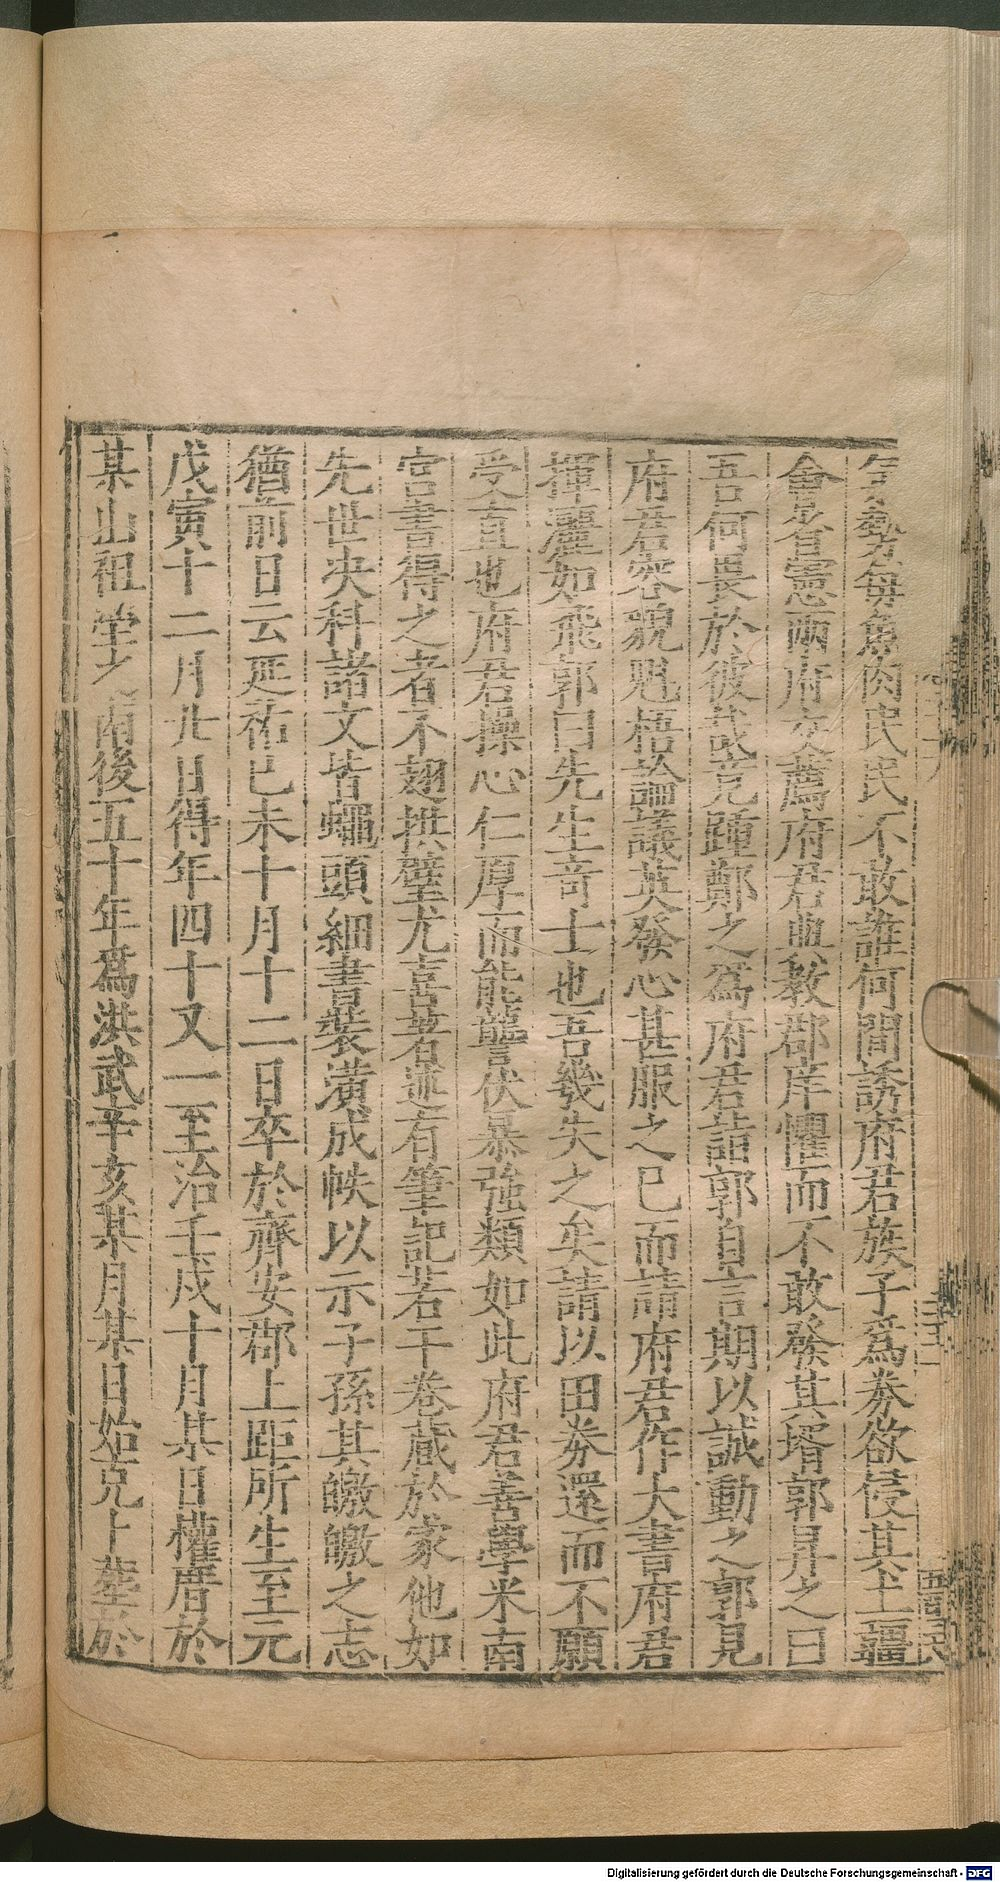 氣勢每魚肉民民不敢誰何閒誘府君族子為券欲侵其土疆
會省憲兩府交薦府君典教郡庠懼而不敢發其壻郭昪之曰
吾何畏於彼哉竟踵鄭之為府君詣郭自言期以誠動之郭見
府君容貌魁梧論議英發心甚服之已而請府君作大書府君
揮灑如飛郭曰先生奇士也吾幾失之矣請以田券還而不願
受直也府君操心仁厚而能讋伏暴強類如此府君善學米南
宮書得之者不翅拱璧尤喜著述有筆記若干卷藏於家他如
先世決科諸文皆蠅頭細書裝潢成帙以示子孫其皦皦之志
猶前日云延祐己未十月十二日卒於齊安郡上距所生至元
戊寅十二月廿日得年四十又一至治壬戌十月某日權厝於
某山祖塋之南後五十年為洪武辛亥某月某日始克上葬於
Digitalisierung gefördert durch die Deutsche Forschungsgemeinschaft - DFG